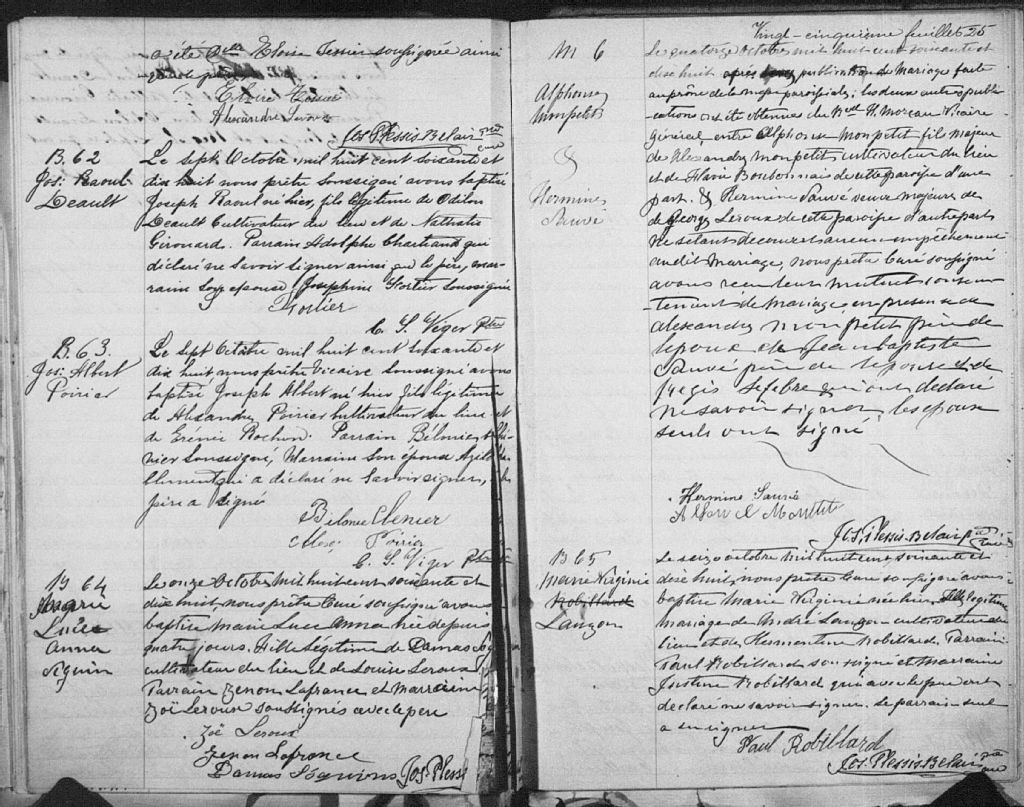 a été Dlle Eloise Tessier soussignée ainsi
que le père
Alexandre
Jos. Plessis-Belair ptre
curé
B. 62
Jos: Raoul
Deault
Le sept Octobre mil huit cent soixante et
dix huit nous prêtre soussigné avons baptisé
Joseph Raoul né hier, fils légitime de Odilon
Deault Cultivateur du lieu et de Nathalie
Girouard. Parrain Adolphe Chartrand qui
déclaré ne savoir signer ainsi que le père, mar-
raine son epouse Josephine Fortier Soussignée
Fortier
C. S. Viger Ptre
B. 63.
Jos: Albert
Poirier
Le sept Octobre mil huit cent soixante et
dix huit nous prêtre Vicaire soussigné avons
baptisé Joseph Albert né hier fils légitime
de Alexandre Poirier Cultivateur du lieu et
de Erénie Rochon. Parrain Bélonie
nier Soussigné, Marraine son épouse
Clement qui a déclaré ne savoir signer,
père a signé
Bélonie Clenier
Alex: Poirier
C. S. Viger Ptre
B 64
Marie
Luce
Anna
Séguin
Le onze Octobre mil huit cent soixante et
dix huit, nous prêtre Curé soussigné avons
baptisé Marie Luce Anna née depuis
quatre jours, Fille Légitime de Damas
cultivateur du lieu et de Louise Leroux
Parrain Zenon Lafrance et Marraine
Zoë Leroux soussignés avec le pere
Zoë Leroux
Zenon Lafrance
Damas Séguin
Jos. Pless
Vingt-cinquieme feuillet 25
M 6
Alphonse
Monpetit
&
Hermine
Sauvé
Le quatorze Octobre mil huit cent soixante et
dix huit après publication de Mariage faite
au prône de la messe paroissiale; les deux autres publi-
cations ont été obtenues du Rvd H. Moreau Vicaire
Général, entre Alphonse Monpetit fils majeur
de Alexandre Monpetit cultivateur du lieu
et de Flavie Bourbonnais de cette paroisse d'une
part. & Hermine Sauvé veuve majeure de
de George Leroux de cette paroisse d'autre part
Ne s'étant decouvert aucun empêchement
au dit Mariage, nous prêtre Curé soussigné
avons recu leur mutuel consen-
tement de mariage, en presence de
alexandre monpetit père de
lepoux de Jean baptiste
Sauvé père de lepouse et de
Regis Lefebre qui ont declaré
ne savoir signer, les epoux
seuls ont signé
Hermine Sauvé
Jos. Plessis-Belair ptre
curé
B 65
Marie Virginie
Robillard
Lauzon
Le seize octobre mil huit cent soixante et
dix huit, nous prêtre Curé soussigné avons
baptisé Marie Virginie née hier, fille légitime
mariage de André Lauzon cultivateur du
lieu et de Clementine Robillard. Parrain
Paul Robillard soussigné et Marraine
Justine Robillard qui avec le pere ont
declaré ne savoir signer. Le parrain seul
a su signer
Paul Robillard
Jos. Plessis-Belair ptre
curé